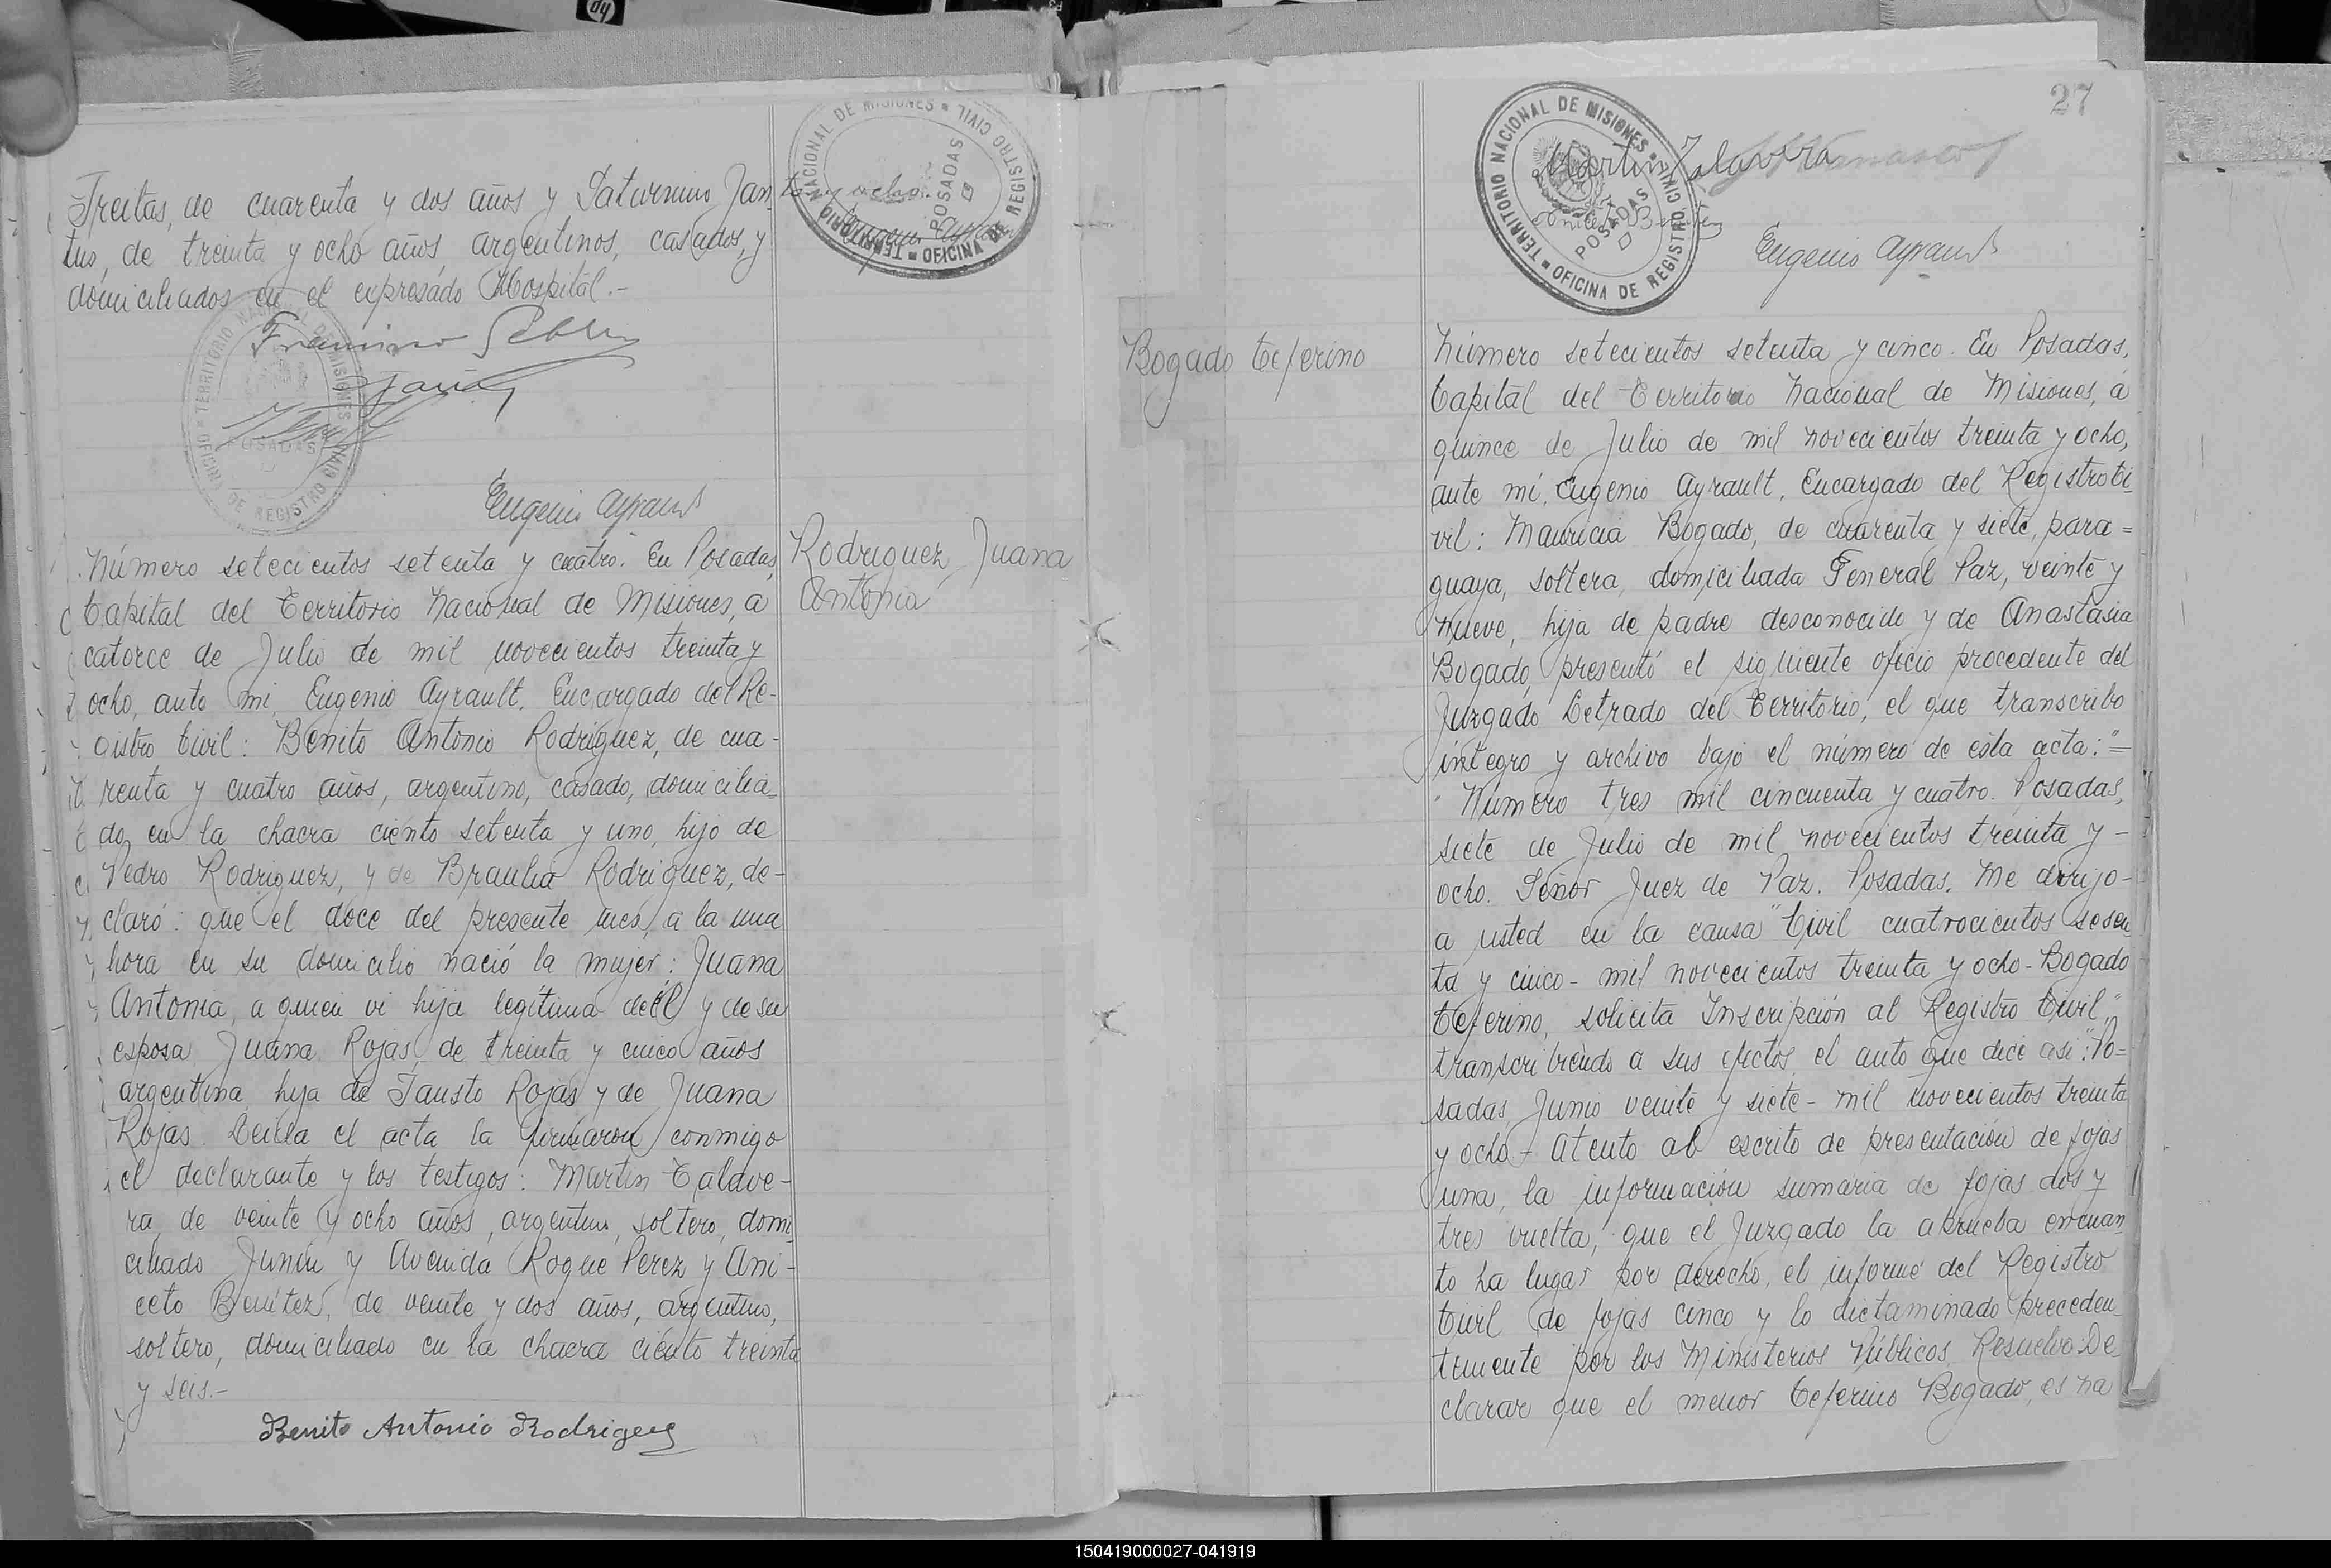 Freitas, de cuarenta y dos años y Saturnino San
tus, de treinta y ocho años, argentinos, casados, y
domiciliados en el expresado Hospital.-
TERRITORIO NACIONAL DE MISIONES
OFICINA DE REGISTRO CIVIL
POSADAS
Eugenio Ayrault
Número setecientos setenta y cuatro. En Posadas,
Capital del Territorio Nacional de Misiones, a
catorce de Julio de mil novecientos treinta y
ocho, ante mi, Eugenio Ayrault, Encargado del Re-
gistro Civil: Benito Antonio Rodriguez, de cua-
renta y cuatro años, argentino, casado, domicilia-
do, en la chacra ciento setenta y uno, hijo de
Pedro Rodriguez, y de Braulia Rodriguez, de-
claró: que el doce del presente mes, a la una
hora en su domicilio nació la mujer: Juana
Antonia, a quien vi hija legítima de él y de su
esposa Juana Rojas, de treinta y cinco años
argentina, hija de Fausto Rojas y de Juana
Rojas. Leída el acta la firmaron conmigo
el declarante y los testigos: Martin Talave-
ra, de veinte y ocho años, argentino, soltero, domi
ciliado Junín y Avenida Roque Perez y Ani-
ceto Benítez, de veinte y dos años, argentino,
soltero, domiciliado en la chacra ciento treinta
y seis.-
Benito Antonio Rodrigez
TERRITORIO NACIONAL DE MISIONES
OFICINA DE REGISTRO CIVIL
POSADAS
Rodriguez Juana
Antonia
27
TERRITORIO NACIONAL DE MISIONES
OFICINA DE REGISTRO CIVIL
POSADAS
Martin Talavera
Eugenio Ayrault
Bogado Ceferino
Número setecientos setenta y cinco. En Posadas,
Capital del Territorio Nacional de Misiones, a
quince de Julio de mil novecientos treinta y ocho,
ante mí, Eugenio Ayrault, Encargado del Registro Ci
vil: Mauricia Bogado, de cuarenta y siete, para=
guaya, soltera, domiciliada General Paz, veinte y
nueve, hija de padre desconocido y de Anastasia
Bogado, presentó el siguiente oficio procedente del
Juzgado Letrado del Territorio, el que transcribo
íntegro y archivo bajo el número de esta acta:"=
"Número tres mil cincuenta y cuatro. Posadas,
siete de Julio de mil novecientos treinta y -
ocho. Señor Juez de Paz. Posadas. Me dirijo-
a usted en la causa "Civil cuatrocientos sesen
ta y cinco - mil novecientos treinta y ocho - Bogado
Ceferino, solicita Inscripción al Registro Civil",
transcribiendo a sus efectos, el auto que dice así: "Po=
sadas, Junio veinte y siete - mil novecientos treinta
y ocho - Atento al escrito de presentación de fojas
una, la información sumaria de fojas dos y
tres vuelta, que el Juzgado la aprueba en cuan
to ha lugar por derecho, el informe del Registro
Civil de fojas cinco y lo dictaminado preceden
temente por los Ministerios Públicos, Resuelvo: De
clarar que el menor Ceferino Bogado, es na
150419000027-041919